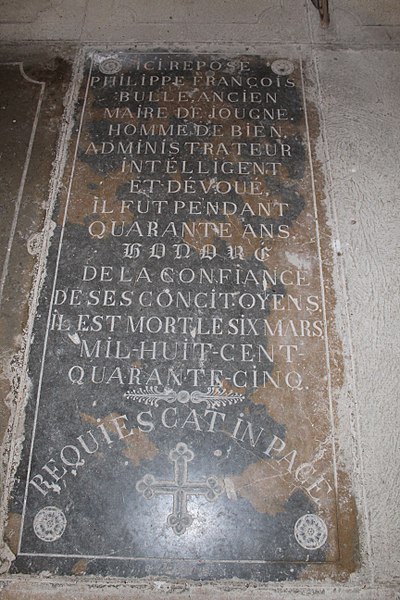 ICI REPOSE
PHILIPPE FRANÇOIS
BULLE, ANCIEN
MAIRE DE JOUGNE,
HOMME DE BIEN,
ADMINISTRATEUR
INTÉLLIGENT
ET DÉVOUÉ,
IL FUT PENDANT
QUARANTE ANS,
HONORÉ
DE LA CONFIANCE
DE SES CONCITOYENS,
IL EST MORT, LE SIX MARS
MIL-HUIT-CENT-
QUARANTE-CINQ.
REQUIESCAT IN PACE